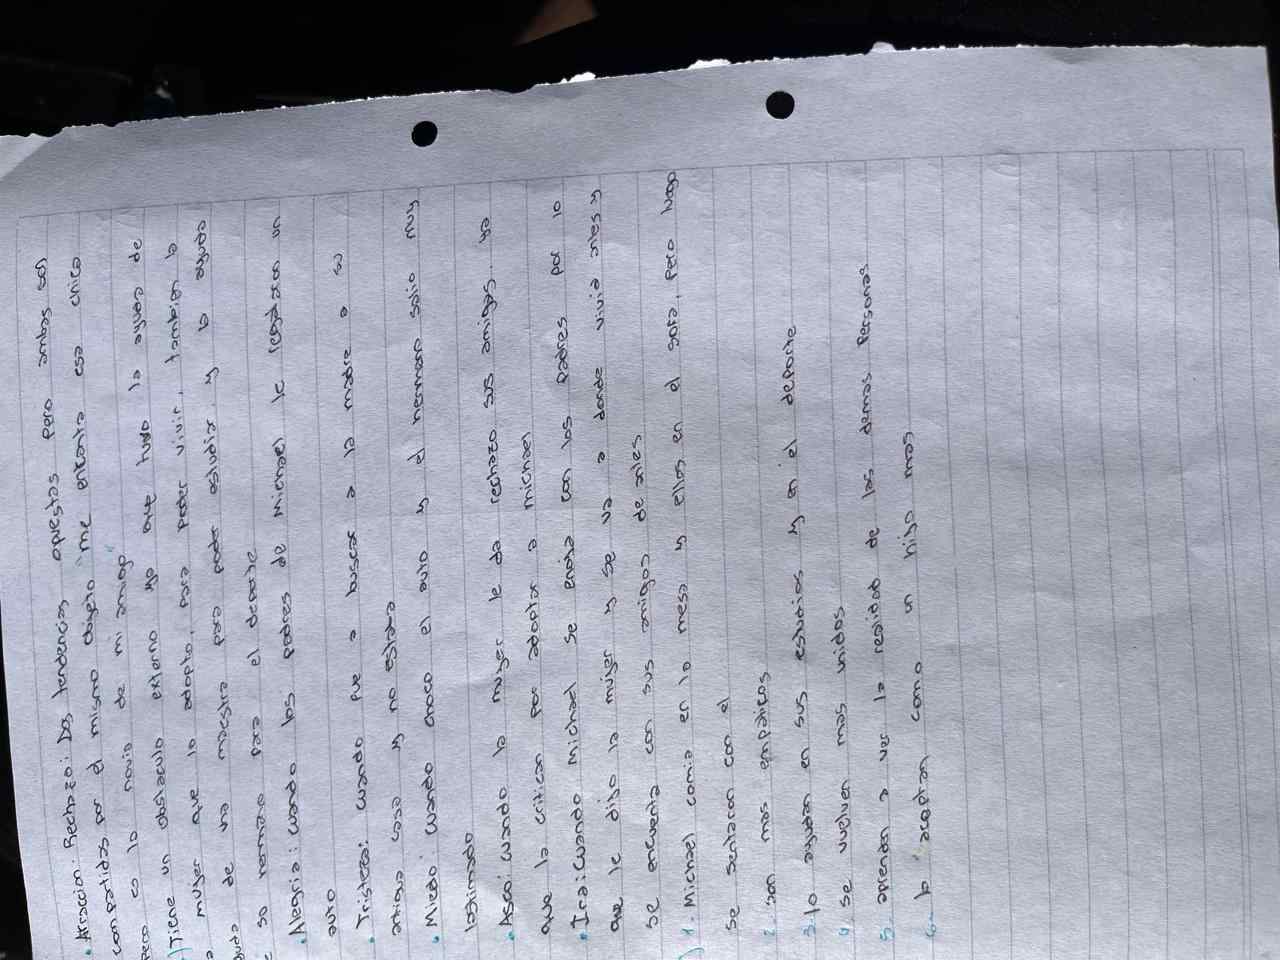 • Atracción. Rechazo: Dos tendencias opuestas pero ambas son
compartidas por el mismo objeto "me encanta esa chica
pero es la novia de mi amigo"
) Tiene un obstaculo externo ya que tuvo la ayuda de
mujer que lo adopto, para poder vivir, tambien la
ayuda de una maestra para poder estudiar y la ayuda
de su hermano para el deporte
• Alegria: cuando los padres de Michael le regalaron un
auto
• Tristeza: cuando fue a buscar a la madre a su
antigua casa y no estaba
• Miedo: cuando choco el auto y el hermano salio muy
lastimado
• Asco: cuando la mujer le da rechazo sus amigas. ya
que la critican por adoptar a michael
• Ira: cuando Michael se enoja con los padres por lo
que le dijo la mujer y se va a donde vivia antes y
se encuentra con sus amigos de antes
) 1. Michael comia en la mesa y ellos en el sofa, pero luego
se sentaron con el
2. son mas empaticos
3. lo ayudan en sus estudios y en el deporte
4. se vuelven mas unidos
5. aprenden a ver la realidad de las demas personas
6. lo aceptan como un hijo mas